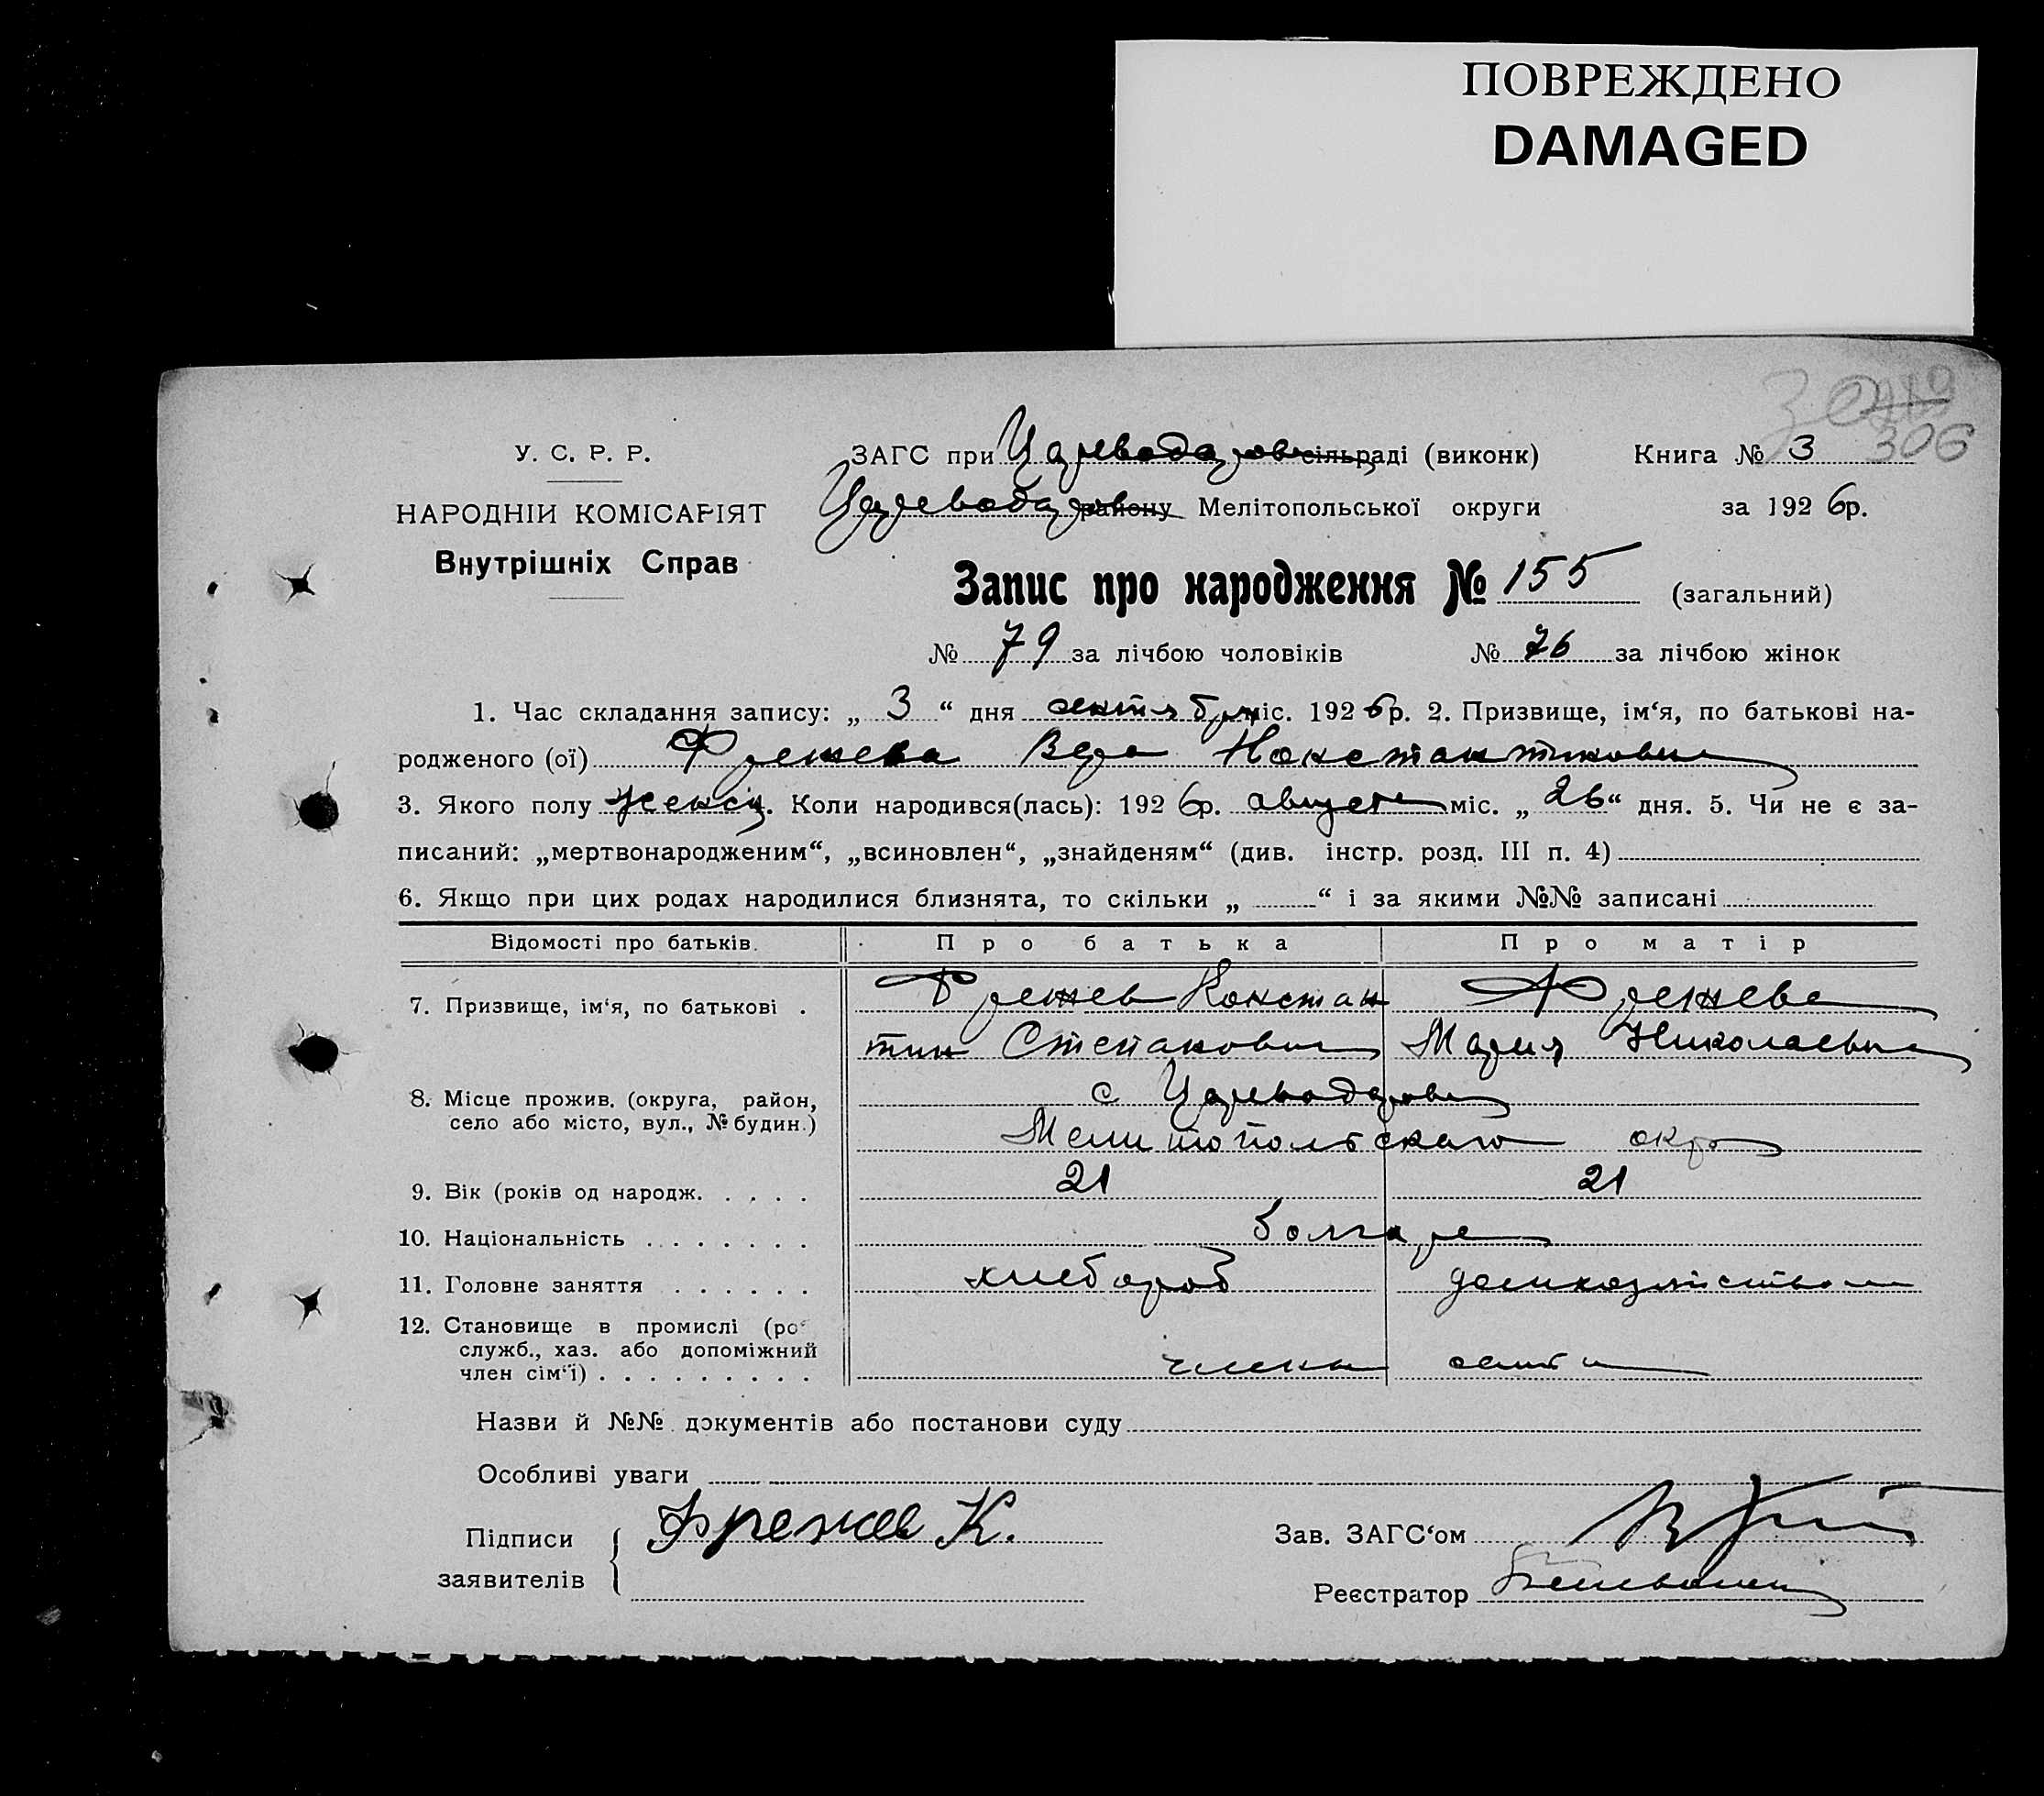 ПОВРЕЖДЕНО
DAMAGED
306
У. С. Р. Р.
ЗАГС при Цареводаровсільраді (виконк)
Книга № 3
НАРОДНІЙ КОМІСАРІЯТ
Цареводаров району Мелітопольської округи
за 1926р.
Внутрішніх Справ
Запис про народження № 155 (загальний)
№ 79 за лічбою чоловіків № 76 за лічбою жінок
1. Час складання запису: „ 3 “ дня сентября міс. 1926р. 2. Призвище, ім‘я, по батькові на-
родженого (ої) Френева Вера Констактиновна
3. Якого полу женск. Коли народився(лась): 1926р. августа міс. „ 26 “ дня. 5. Чи не є за-
писаний: „мертвонародженим“, „всиновлен“, „знайденям“ (див. інстр. розд. III п. 4)
6. Якщо при цих родах народилися близнята, то скільки „ “ і за якими №№ записані
Відомості про батьків. Про батька Про матір
7. Призвище, ім‘я, по батькові . Френев Констан Френева
тин Степанович Мария Николаевна
8. Місце прожив. (округа, район, с Цареводаровка
село або місто, вул., № будин.) Мелитопольского окр
9. Вік (років од народж. . . . . 21 21
10. Національність . . . . . . . болгаре
11. Головне заняття . . . . . . хлебороб домхозяйством
12. Становище в промислі (ро
служб., хаз. або допоміжний
член сім‘ї) . . . . . . . . . члены семьи
Назви й №№ документів або постанови суду
Особливі уваги
Підписи Френев К. Зав. ЗАГС‘ом
заявителів
Реєстратор